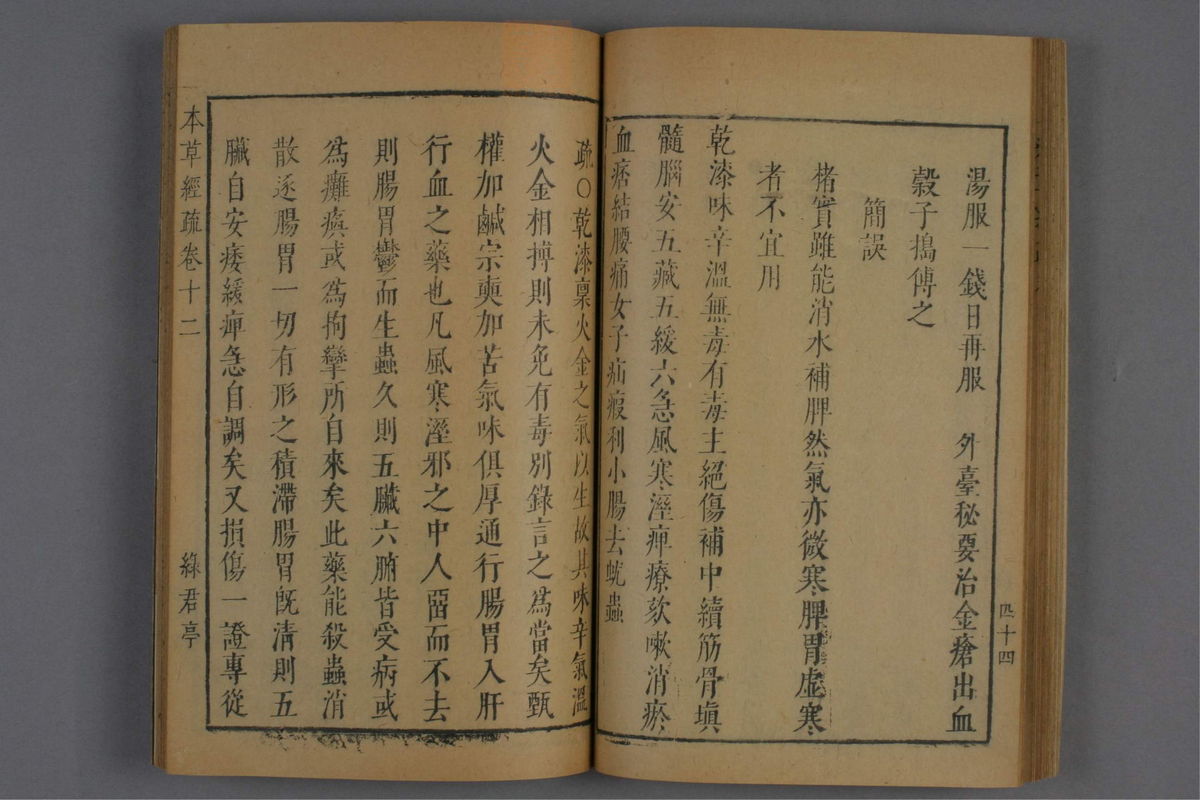 湯服一錢日再服　外臺秘要治金瘡出血
穀子搗傅之
簡誤
楮實雖能消水補脾然氣亦微寒脾胃虛寒
者不宜用
乾漆味辛溫無毒有毒主絕傷補中續筋骨塡
髓腦安五藏五緩六急風寒溼痺療欬嗽消瘀
血痞結腰痛女子疝瘕利小腸去蚘蟲
四十四
疏○乾漆稟火金之氣以生故其味辛氣溫
火金相搏則未免有毒別錄言之為當矣甄
權加鹹宗奭加苦氣味俱厚通行腸胃入肝
行血之藥也凡風寒溼邪之中人畱而不去
則腸胃鬱而生蟲久則五臟六腑皆受病或
為癱瘓或為拘攣所自來矣此藥能殺蟲消
散逐腸胃一切有形之積滯腸胃旣清則五
臟自安痿緩痺急自調矣又損傷一證專從
本草經疏卷十二
綠君亭